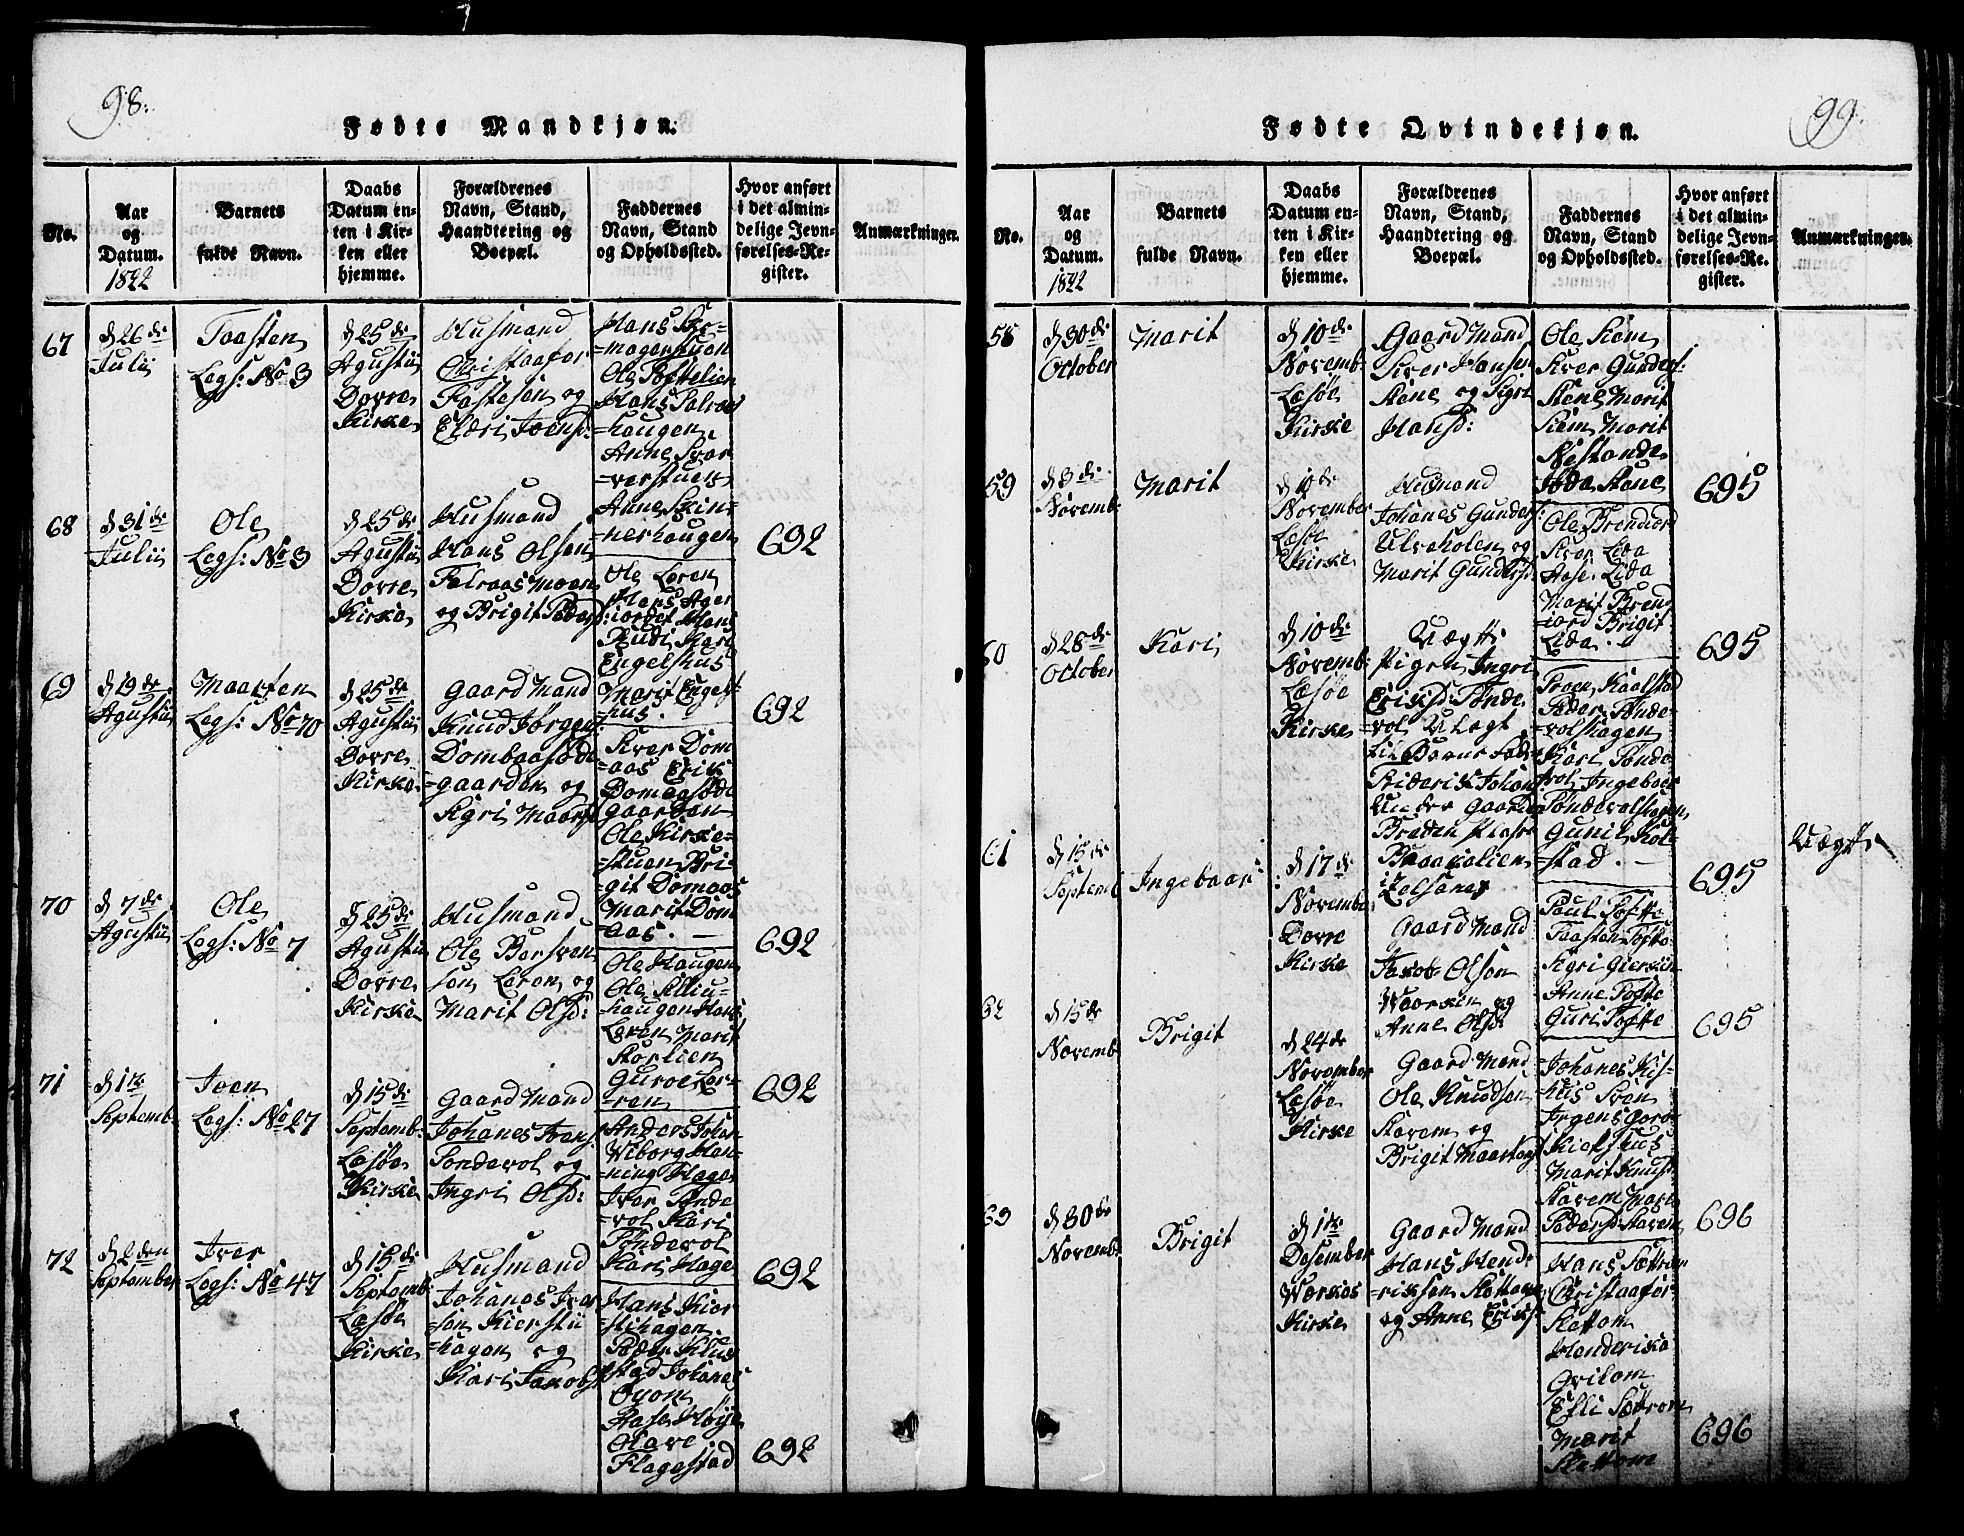 98.
Fødte Mandkjøn.
No.
Aar
og
Datum.
1822
Barnets
fulde Navn.
Daabs
Datum en-
ten i Kir-
ken eller
hjemme.
Forældrenes
Navn, Stand,
Haandtering og
Boepæl.
Faddernes
Navn, Stand
og Opholdssted.
Hvor anført
i det almin-
delige Jevn-
førelses-Re-
gister.
Anmærkninger.
67
d 26de
Julii
Taasten
Legs: No 3
d 25de
Agustii
Dovre
Kirke
Husmand
Christaafor
Fastesen og
Eldri Joensd:
Hans
Ole
Hans
=haugen
Anne
Anne Skin-
=nerhaugen
692
68
d 31de
Julii
Ole
Legs: No 3
d 25de
Agustii
Dovre
Kirke
Husmand
Hans Olsen
og Brigit Pedersd:
Ole Loren
Hans
Rudi Kari
Engelshus
Marit Engels-
hus.
692
69
d 19de
Agustii
Maarten
Legs: No 70
d 25de
Agustii
Dovre
Kirke
Gaard Mand
Knud Jørgens:
Dombaasøde
=gaarden og
Sigri Maartsd
Iver Dom
=aas Erik
Domaasøde
gaarden
Ole Kirke=
=stuen Bri=
=git Domaas
Marit Dom
=aas.
692
70
d 7de
Agustii
Ole
Legs: No 7
d 25de
Agustii
Dovre
Kirke
Husmand
Ole Bersven
sen Loren og
Marit Olsd:
Ole Haugen
Ole
haugen Hans
Loren Marit
Storlien
Guroe Lor=
=ren
692
71
d 1ste
Septemb:
Joen
Legs: No 27
d 15de
Septemb:
Lesøe
Kirke
Gaard Mand
Johanes Joens:
Tøndevol og
Ingri Olsd:
Anders Johan
Wiborg Hen-
=ning Flage
Iver Tønde
=vol Kari
Tøndevol
Kari Flage
692
72
d 2den
September
Iver
Legs: No 47
d 15de
Septemb:
Lesøe
Kirke
Husmand
Johanes Iver
sen Kierstii
=hagen og
Kari Jakobsd
Hans Kier
stihagen
Peder Klus
stad Johanes
Øyom
Aase Høije
Olave
Flagestad
692
99.
Fødte Qvindekjøn.
No.
Aar
og
Datum.
1822
Barnets
fulde Navn.
Daabs
Datum en-
ten i Kir-
ken eller
hjemme.
Forældrenes
Navn, Stand,
Haandtering og
Boepæl.
Faddernes
Navn, Stand
og Opholdssted.
Hvor anført
i det almin-
delige Jevn-
førelses-Re-
gister.
Anmærkninger.
58
d 30de
October
Marit
d 10de
Novemb:
Lesøe
Kirke
Gaard Mand
Iver Hansen
Stene og Sigri
Hansd:
Ole Stem
Iver Gunders:
Stene Marit
Stem Marit
Nestande
Stene
695
59
d 3de
Novemb:
Marit
d 10de
November
Lesøe
Kirke
Husmand
Johanes Gunders
Ulveholen og
Marit Gundersd
Ole Brendjord
Iver Lida
Aase Lida
Marit Brend
=jord Brigit
Lida.
695
60
d 28de
October
Kari
d 10de
Novemb:
Lesøe
Kirke
Uægte
Pigen Ingri
Eriksd: Tønde
=vol Udlagt
til Barnefader
Friderik Johan
Gaarden
Peder Tønde-
=volshagen
Kari Tønde
=vol Ingeboer
Tøndevolshagen
Gunil Kol-
=stad.
695
Uægte
61
d 15de
Septemb
Ingebaar
d 17de
Novembe
Dovre
Kirke
Gaard Mand
Jakob Olsen
og
Anne Olsd:
Poul Tofte
Taasten Tofte
Sigri Gierkin
Anne Tofte
Guri Tofte
695
62
d 15de
Novemb:
Brigit
d 24de
November
Lesøe
Kirke
Gaard Mand
Ole Knudsen
Stavem og
Brigit Maartensd
Johanes Kis-
Sven
Marit Knudsd
Stavem Mari
Pedersd: Stavem
696
63
d 30de
Novemb:
Brigit
d 1ste
Desember
Werkes
Kirke
Gaard Mand
Hans Hend
=riksen Slettom
og Anne Eriksd
Hans Sættrom
Christaafor
Slettom
Henderika
Qvitom
Efli Sættrom
Marit
Slettom
696